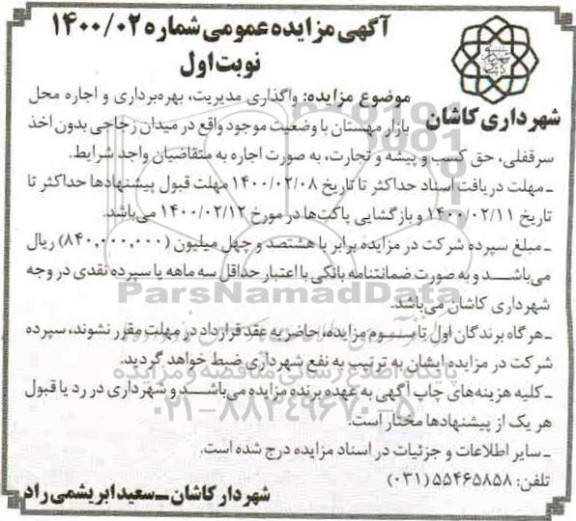 آگهی مزایده عمومی شماره ۱۴۰۰/۰۲
نوبت اول
شهرداری کاشان
موضوع مزایده: واگذاری مدیریت، بهره‌برداری و اجاره محل
بازار مهستان با وضعیت موجود واقع در میدان زجاجی بدون اخذ
سرقفلی، حق کسب و پیشه و تجارت، به صورت اجاره به متقاضیان واجد شرایط.
ـ مهلت دریافت اسناد حداکثر تا تاریخ ۱۴۰۰/۰۲/۰۸ مهلت قبول پیشنهادها حداکثر تا
تاریخ ۱۴۰۰/۰۲/۱۱ و بازگشایی پاکت‌ها در مورخ ۱۴۰۰/۰۲/۱۲ می‌باشد.
ـ مبلغ سپرده شرکت در مزایده برابر با هشتصد و چهل میلیون (۸۴۰,۰۰۰,۰۰۰) ریال
می‌باشد و به صورت ضمانتنامه بانکی با اعتبار حداقل سه ماهه یا سپرده نقدی در وجه
شهرداری کاشان می‌باشد.
ـ هر گاه برندگان اول تا سوم مزایده، حاضر به عقد قرارداد در مهلت مقرر نشوند، سپرده
شرکت در مزایده ایشان به ترتیب به نفع شهرداری ضبط خواهد گردید.
ـ کلیه هزینه‌های چاپ آگهی به عهده برنده مزایده می‌باشد و شهرداری در رد یا قبول
هر یک از پیشنهادها مختار است.
ـ سایر اطلاعات و جزئیات در اسناد مزایده درج شده است.
تلفن: ۵۵۴۶۵۸۵۸ (۰۳۱)
شهردار کاشان ـ سعید ابریشمی راد
ParsNamadData
پایگاه اطلاع رسانی مناقصه و مزایده
۰۲۱-۸۸۳۴۹۶۷۰-۵